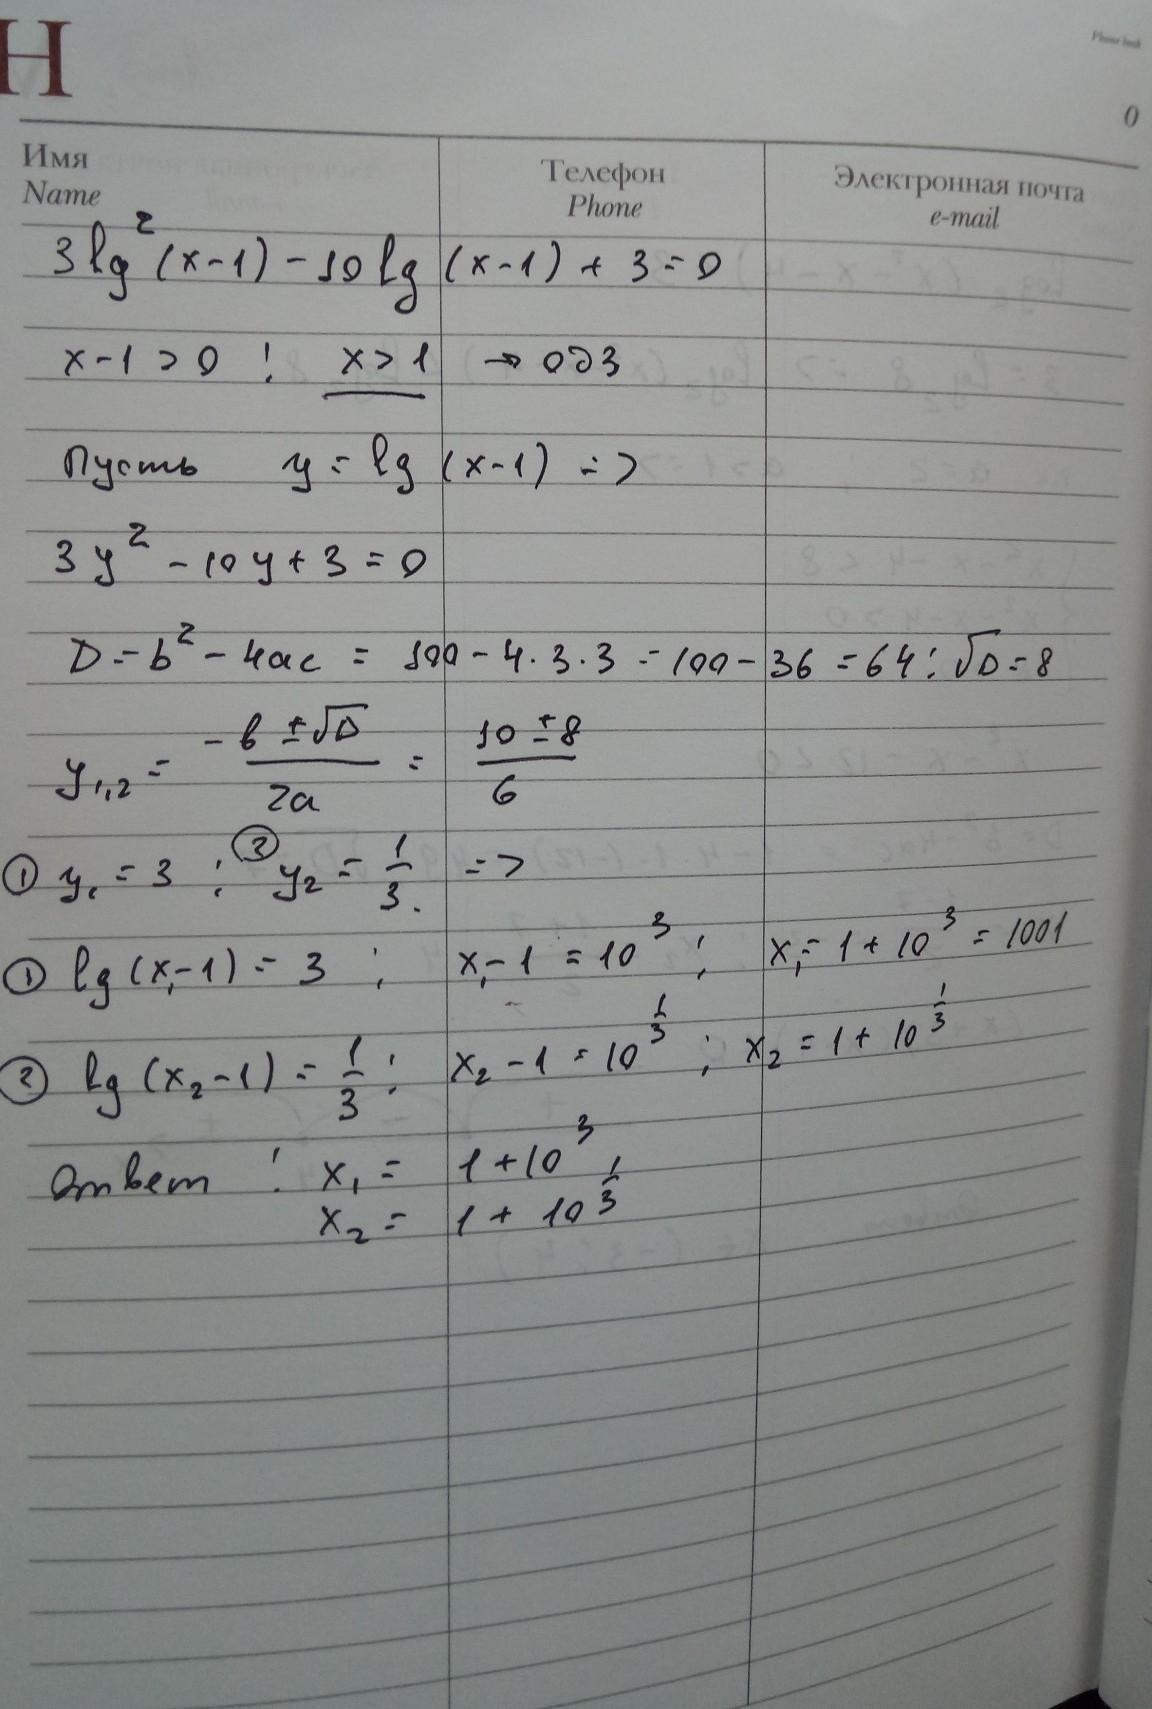 H
Phone book
0
Имя Телефон Электронная почта
Name Phone e-mail
3lg²(x-1) - 10lg(x-1) + 3 = 0
x-1>0 ; x>1 → ОДЗ
Пусть y = lg(x-1) =>
3y² - 10y + 3 = 0
D = b² - 4ac = 100 - 4·3·3 = 100 - 36 = 64; √D = 8
y₁,₂ = (-b ± √D)/2a = (10 ± 8)/6
① y₁ = 3 ; ② y₂ = 1/3. =>
① lg(x₁-1) = 3 ; x₁-1 = 10³ ; x₁ = 1 + 10³ = 1001
② lg(x₂-1) = 1/3 ; x₂ - 1 = 10^(1/3) ; x₂ = 1 + 10^(1/3)
Ответ : x₁ = 1 + 10³
x₂ = 1 + 10^(1/3)